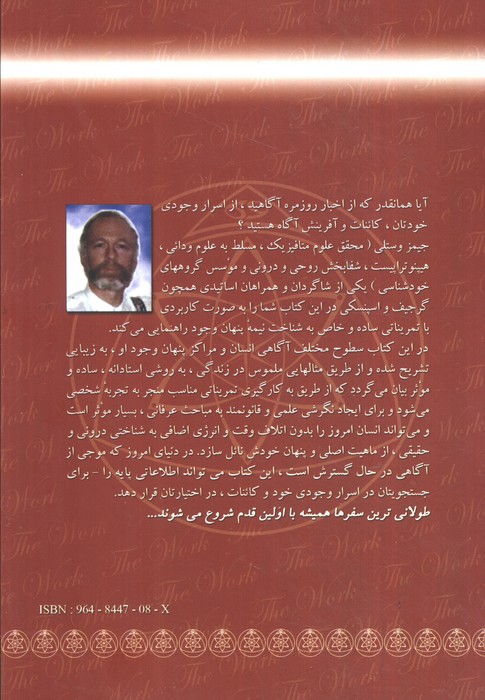 آیا همانقدر که از اخبار روزمره آگاهید ، از اسرار وجودی
خودتان ، کائنات و آفرینش آگاه هستید ؟
جیمز وستلی ( محقق علوم متافیزیک ، مسلط به علوم ودائی ،
هیپنوتراپیست ، شفابخش روحی و درونی و موسس گروههای
خودشناسی ) یکی از شاگردان و همراهان اساتیدی همچون
گرجیف و اسپنسکی در این کتاب شما را به صورت کاربردی
با تمریناتی ساده و خاص به شناخت نیمهٔ پنهان وجود راهنمایی می‌کند.
در این کتاب سطوح مختلف آگاهی انسان و مراکز پنهان وجود او ، به زیبایی
تشریح شده و از طریق مثالهایی ملموس در زندگی ، به روشی استادانه ، ساده و
موثر بیان می‌گردد که از طریق به کارگیری تمریناتی مناسب منجر به تجربه شخصی
می‌شود و برای ایجاد نگرشی علمی و قانونمند به مباحث عرفانی ، بسیار موثر است
و می‌تواند انسان امروز را بدون اتلاف وقت و انرژی اضافی به شناختی درونی و
حقیقی ، از ماهیت اصلی و پنهان خودش نائل سازد. در دنیای امروز که موجی از
آگاهی در حال گسترش است ، این کتاب می تواند اطلاعاتی پایه را – برای
جستجویتان در اسرار وجودی خود و کائنات ، در اختیارتان قرار دهد.
طولانی ترین سفرها همیشه با اولین قدم شروع می شوند...
ISBN : 964 - 8447 - 08 - X
The Work